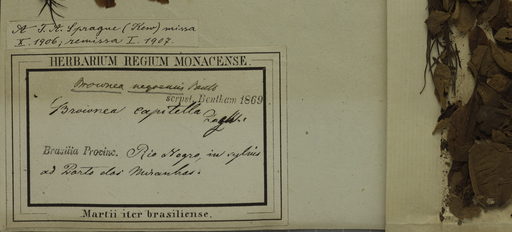 A T. A. Sprague (Kew) missa
X. 1906; remissa I. 1907.
HERBARIUM REGIUM MONACENSE.
Brownea negrensis Benth
scrpst. Bentham 1869.
Brownea capitella
Brasilia Provinc. Rio Negro, in sylvis
ad Porto dos Miranhas.
Martii iter brasiliense.